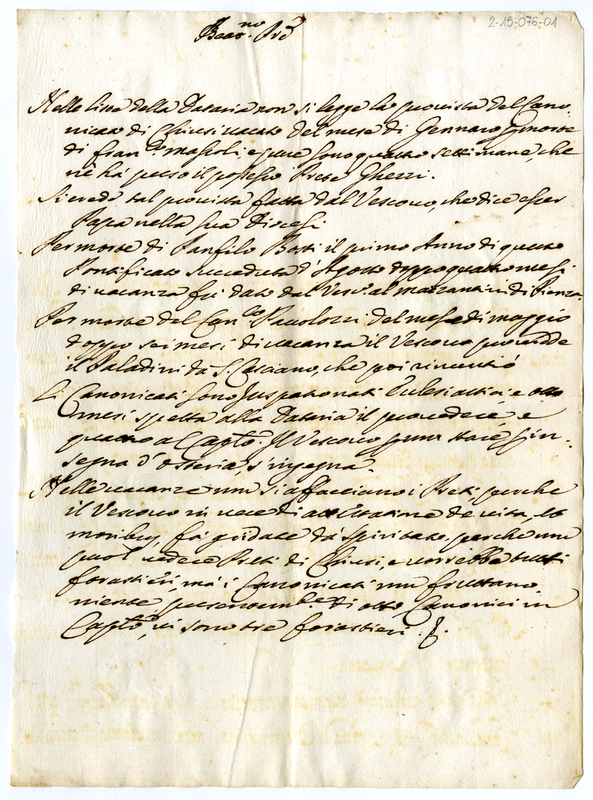 2-15-076-01
Beat.mo Pre
Nelle liste della Dataria non si legge la provista del Cano-
nicato di Chiusi vacato del mese di Gennaro p morte
di Fran.co Mascoli, e pure sono quattro settimane, che
nè hà preso il possesso Prete Ghezzi.
Si crede tal provista fatta dal Vescovo, che dice esser
Papa nella sua Diocesi
Per morte di Panfilo Batti il primo Anno di questo
Pontificato succeduta d'Agosto doppo quattro mesi
di vacanza fù dato dal Vesc.o al Mazzanti di Pienza.
Per morte del Can.co Pavolozzi del mese di Maggio
doppo sei mesi di vacanza il Vescovo providde
il Paladini da S. Casciano, che poi rinuntiò
Li Canonicati sono Juspatronati Eclesiastici e otto
mesi spetta alla Dataria il provedere, e
quattro al Capto. Il Vescovo p non stare p in-
segna d'osteria, s'ingegna.
Nelle vacanze non si affacciano i Preti, perche
il Vescovo in vece di attestatione de vita, et
moribus, fà gridate da spiritato, perche non
puol vedere Preti di Chiusi, e vorrebbe tutti
forastieri, mà i Canonicati non fruttano
niente, presentem.te di otto Canonici in
Capto, vi sono tre forastieri.